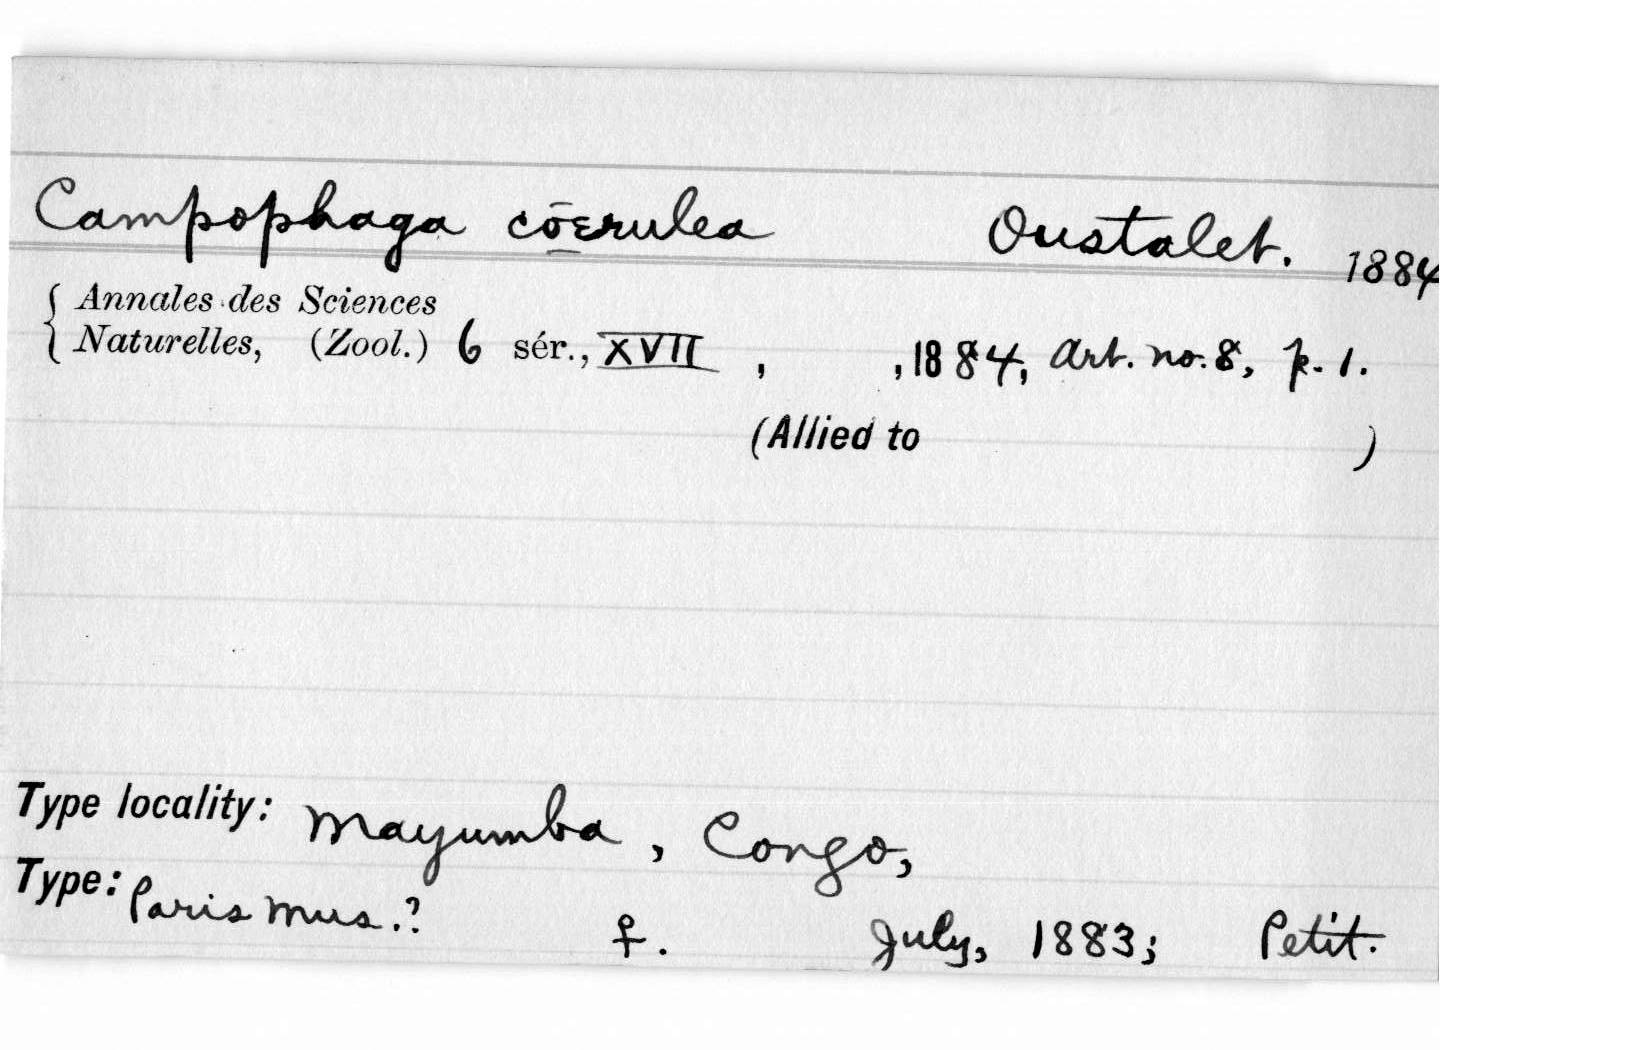 Campophaga cōerulea Oustalet. 1884
{ Annales des Sciences
Naturelles, (Zool.) 6 sér., XVII , , 1884, Art. no. 8, p. 1.
(Allied to )
Type locality: Mayumba, Congo,
Type: Paris Mus.? ♀. July, 1883; Petit.